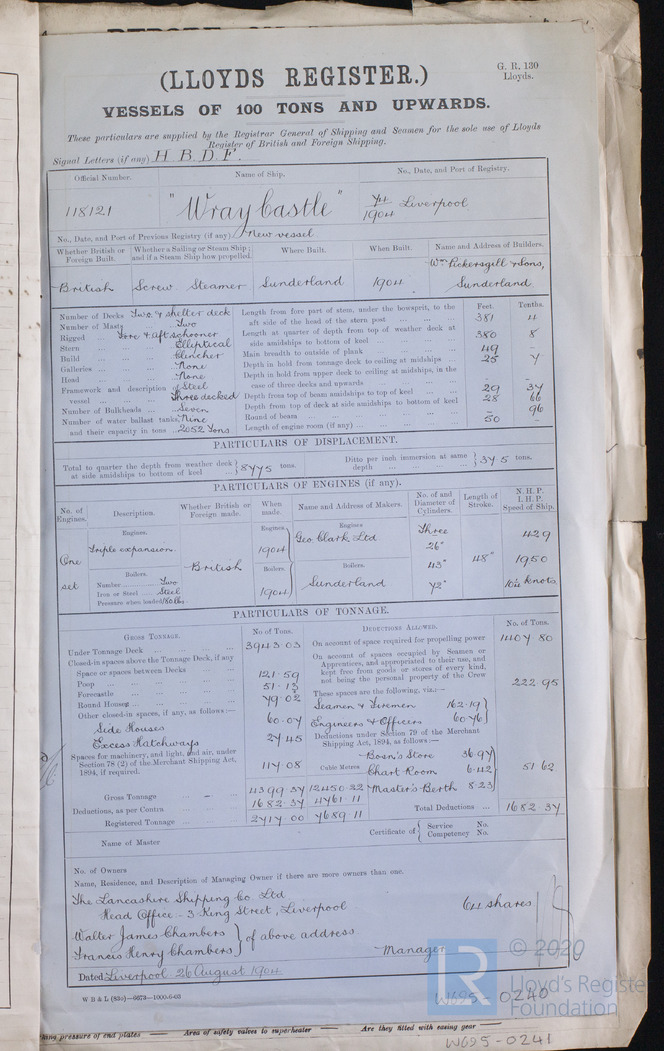 (LLOYDS REGISTER.)
G. R. 130
Lloyds.
VESSELS OF 100 TONS AND UPWARDS.
These particulars are supplied by the Registrar General of Shipping and Seamen for the sole use of Lloyds
Register of British and Foreign Shipping.
Signal Letters (if any) H.B.D.F.
Official Number. Name of Ship. No., Date, and Port of Registry.
118121 "Wray Castle" 74/1904 Liverpool
No., Date, and Port of Previous Registry (if any) New vessel
Whether British or Foreign Built. Whether a Sailing or Steam Ship; and if a Steam Ship how propelled. Where Built. When Built. Name and Address of Builders.
British Screw Steamer Sunderland 1904 Wm Pickersgill & Sons, Sunderland
Number of Decks Two & shelter deck
Number of Masts Two
Rigged Fore & aft schooner
Stern Elliptical
Build Clencher
Galleries None
Head None
Framework and description of vessel Steel Three decked
Number of Bulkheads Seven
Number of water ballast tanks, Nine
and their capacity in tons 2052 Tons
Feet. Tenths.
Length from fore part of stem, under the bowsprit, to the aft side of the head of the stern post 381 4
Length at quarter of depth from top of weather deck at side amidships to bottom of keel 380 8
Main breadth to outside of plank 49 -
Depth in hold from tonnage deck to ceiling at midships 25 7
Depth in hold from upper deck to ceiling at midships, in the case of three decks and upwards - -
Depth from top of beam amidships to top of keel 29 37
Depth from top of deck at side amidships to bottom of keel 28 66
Round of beam - 96
Length of engine room (if any) 50 -
PARTICULARS OF DISPLACEMENT.
Total to quarter the depth from weather deck at side amidships to bottom of keel 8775 tons. Ditto per inch immersion at same depth 37.5 tons.
PARTICULARS OF ENGINES (if any).
No. of Engines. Description. Whether British or Foreign made. When made. Name and Address of Makers. No. of and Diameter of Cylinders. Length of Stroke. N.H.P. I.H.P. Speed of Ship.
One set
Engines. Triple expansion.
Boilers.
Number Two
Iron or Steel Steel
Pressure when loaded 180 lbs.
British
Engines, 1904
Boilers. 1904
Engines Geo. Clark Ltd
Boilers. Sunderland
Three 26" 43" 72"
48"
429
1950
10¼ knots
PARTICULARS OF TONNAGE.
GROSS TONNAGE. No of Tons.
Under Tonnage Deck 3943.03
Closed-in spaces above the Tonnage Deck, if any
Space or spaces between Decks 121.59
Poop 51.13
Forecastle 79.02
Round Houses
Other closed-in spaces, if any, as follows:—
Side Houses 60.07
Excess Hatchways 27.45
Spaces for machinery, and light, and air, under Section 78 (2) of the Merchant Shipping Act, 1894, if required. 117.08
Gross Tonnage 4399.37 12450.22
Deductions, as per Contra 1682.37 4761.11
Registered Tonnage 2717.00 7689.11
DEDUCTIONS ALLOWED. No. of Tons.
On account of space required for propelling power 1407.80
On account of spaces occupied by Seamen or Apprentices, and appropriated to their use, and kept free from goods or stores of every kind, not being the personal property of the Crew 222.95
These spaces are the following, viz.:—
Seamen & Firemen 162.19
Engineers & Officers 60.76
Deductions under Section 79 of the Merchant Shipping Act, 1894, as follows:—
Cubic Metres.
Bosn's Store 36.97
Chart Room 6.42
Master's Berth 8.23
51.62
Total Deductions 1682.37
Name of Master
Certificate of Service No. Competency No.
No. of Owners
Name, Residence, and Description of Managing Owner if there are more owners than one.
The Lancashire Shipping Co Ltd
Head Office - 3 King Street, Liverpool 64 shares
Walter James Chambers
Francis Henry Chambers } of above address
Manager
Dated Liverpool 26 August 1904
W B & L (83o)—6673—1000-6-03
LR
© 2020
Lloyd's Register
Foundation
W695-0240
king pressure of end plates Area of safety valves to superheater Are they fitted with easing gear
W695-0241